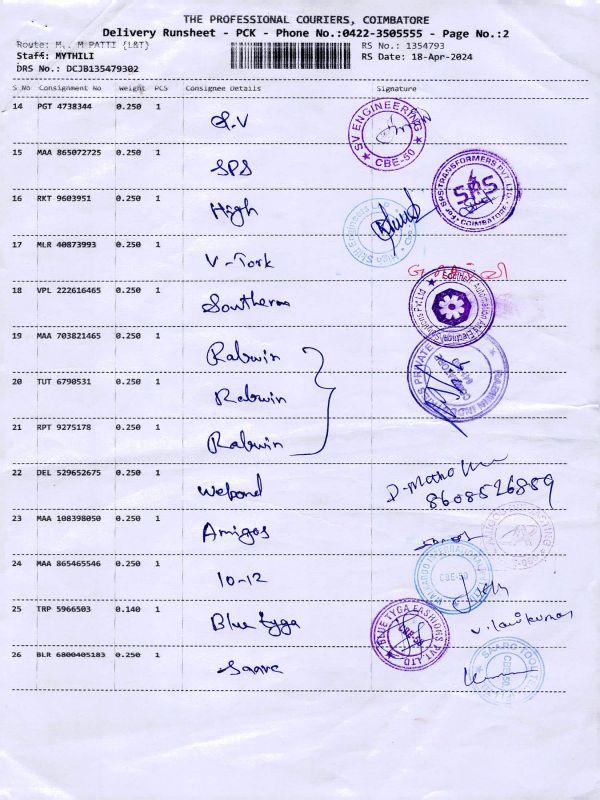 THE PROFESSIONAL COURIERS, COIMBATORE
Delivery Runsheet - PCK - Phone No.:0422-3505555 - Page No.:2
Route: M,. M PATTI {L&T}
RS No.: 1354793
Staff: MYTHILI
RS Date: 18-Apr-2024
DRS No.: DCJB135479302
S No Consignment No Weight PCS Consignee Details Signature
14 PGT 4738344 0.250 1 S.V
SV ENGINEERING CBE-50
15 MAA 865072725 0.250 1 SPS
For SPS TRANSFORMERS PVT. LTD. SPS COIMBATORE
16 RKT 9603951 0.250 1 High
17 MLR 40873993 0.250 1 V-Tork
18 VPL 222616465 0.250 1 Southern
19 MAA 703821465 0.250 1 Rabwin
20 TUT 6790531 0.250 1 Rabwin
21 RPT 9275178 0.250 1 Rabwin
22 DEL 529652675 0.250 1 Webond
8608526889
23 MAA 108398050 0.250 1 Amigos
24 MAA 865465546 0.250 1 10-12
CBE-50
25 TRP 5966503 0.140 1 Blue tyga
BLUE TYGA FASHIONS PVT. LTD CBE-50
V. Lavikumar
26 BLR 6800405183 0.250 1 Saarc
CBE-50